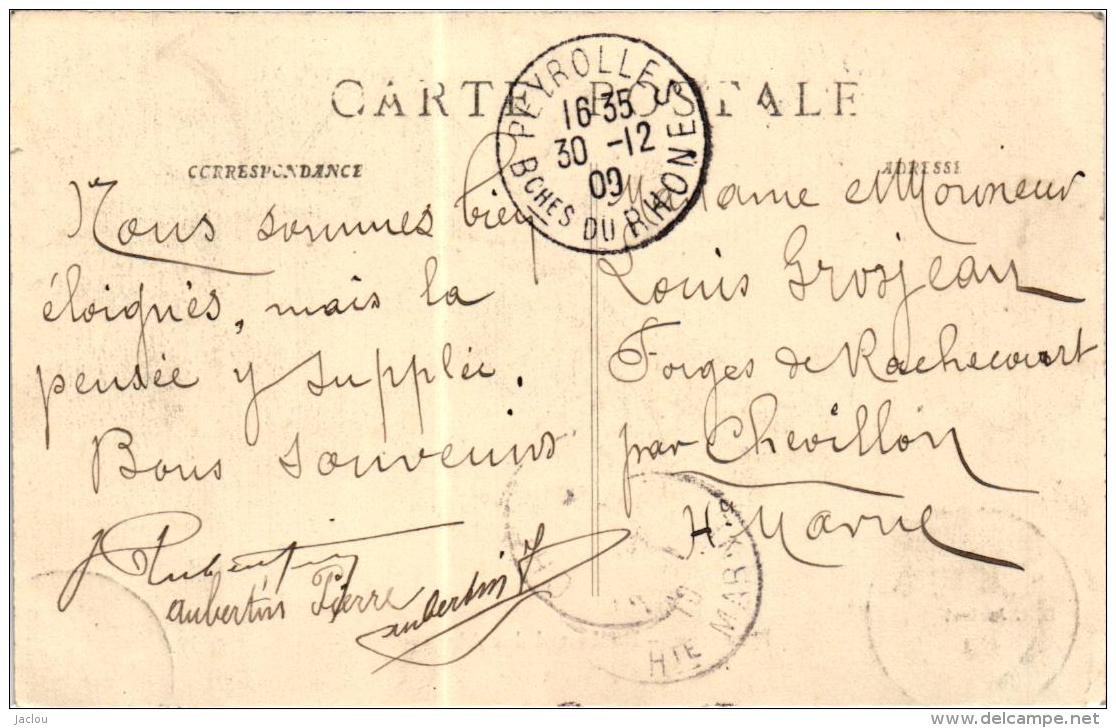 CARTE POSTALE
PEYROLLES
16 35
30 -12
09
BCHES DU RHONE
CORRESPONDANCE
Nous sommes bien
éloignés, mais la
pensée y supplée.
Bons souvenirs
J Aubertin
Aubertin Pierre
Aubertin J
ADRESSE
Madame et Monsieur
Louis Grosjean
Forges de Rachecourt
par Chevillon
Hte Marne
HTE MARNE
jaclou
www.delcampe.net